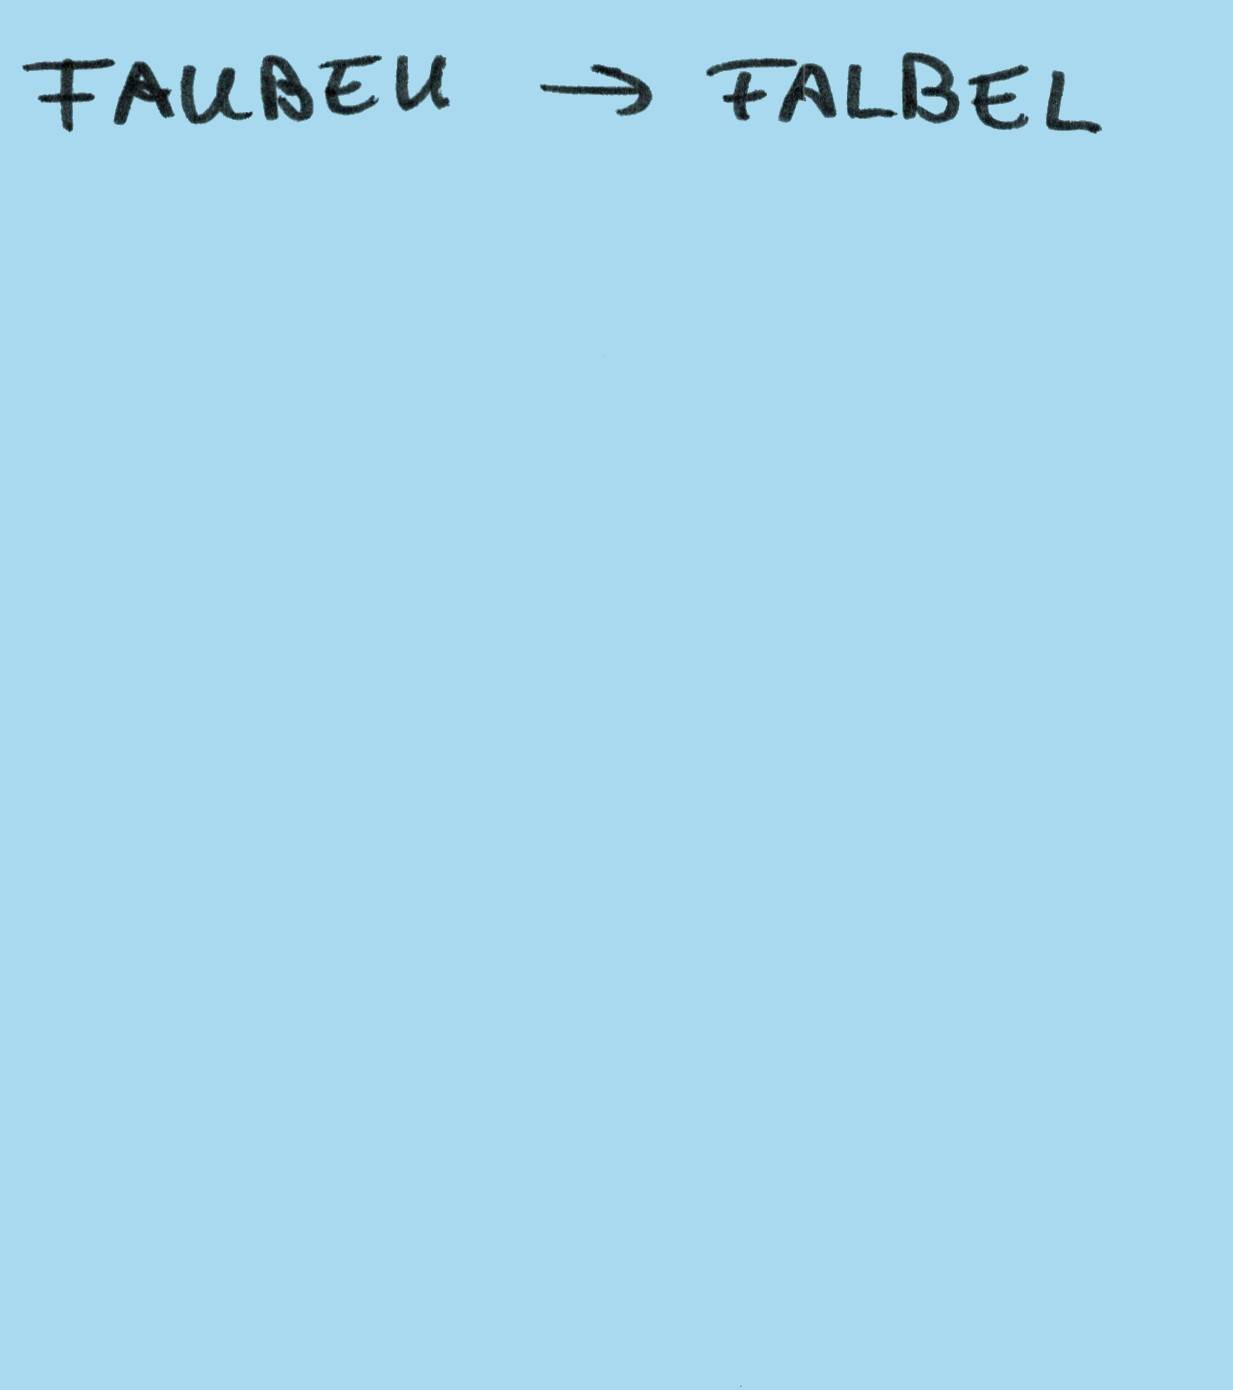 FAUBEU → FALBEL